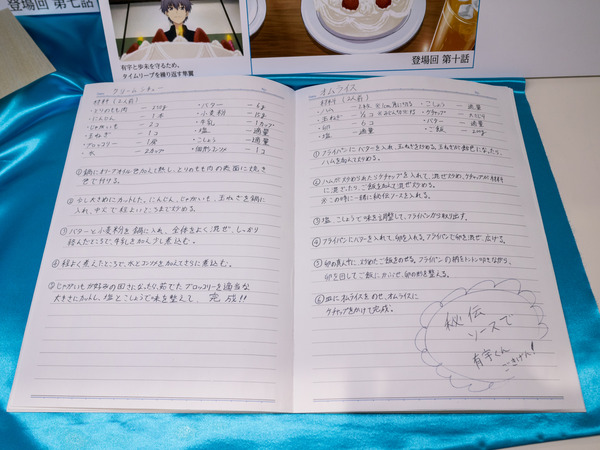 登場回 第七話
有宇と歩未を守るため、
タイムリープを繰り返す隼翼
登場回 第十話
クリームシチュー
材料(2人前)
・とりのもも肉
・にんじん ― 1本
・じゃがいも ― 2コ
・玉ねぎ ― 1コ
・ブロッコリー ― 1房
・水 ― 2カップ
・バター
・小麦粉
・牛乳 ― 1カップ
・塩 ― 適量
・こしょう ― 適量
・固形コンソメ ― 1コ
①鍋にオリーブオイルを加えて熱し、とりのもも肉の表面に焼き
色を付ける。
②少し大きめにカットした、にんじん、じゃがいも、玉ねぎを鍋に
入れ、中火で程よいところまで炒める。
③バターと小麦粉を鍋に入れ、全体をよく混ぜ、しっかり
絡んだところで、牛乳を加え少し煮込む。
④程よく煮えたところで、水とコンソメを加えてさらに煮込む。
⑤じゃがいもが好みの固さになったら、茹でたブロッコリーを適当な
大きさにカットし、塩とこしょうで味を整えて、完成!!
オムライス
材料(2人前)
・ハム
・玉ねぎ
・卵 ― 6コ
・塩 ― 適量
・こしょう ― 適量
・ケチャップ
・バター ― 適量
・ご飯
①フライパンにバターを入れ、玉ねぎを炒める。玉ねぎが飴色になったら、
ハムを加えて炒める。
②ハムが炒められたらケチャップを入れて、混ぜ炒め、ケチャップが材料
に混ざったら、ご飯を加えて混ぜ炒める。
※この時に一緒に秘伝ソースを入れる。
③塩、こしょうで味を調整して、フライパンから取り出す。
④フライパンにバターを入れて卵を入れる。フライパンで卵を混ぜ、広げる。
⑤卵の真ん中に、炒めたご飯をのせる。フライパンの柄をトントンたたきながら、
卵を回してご飯にかぶせ、卵の形を整える。
⑥皿にオムライスをのせ、オムライスに
ケチャップをかけて完成。
秘伝
ソースで
有宇くん
ごきげん!